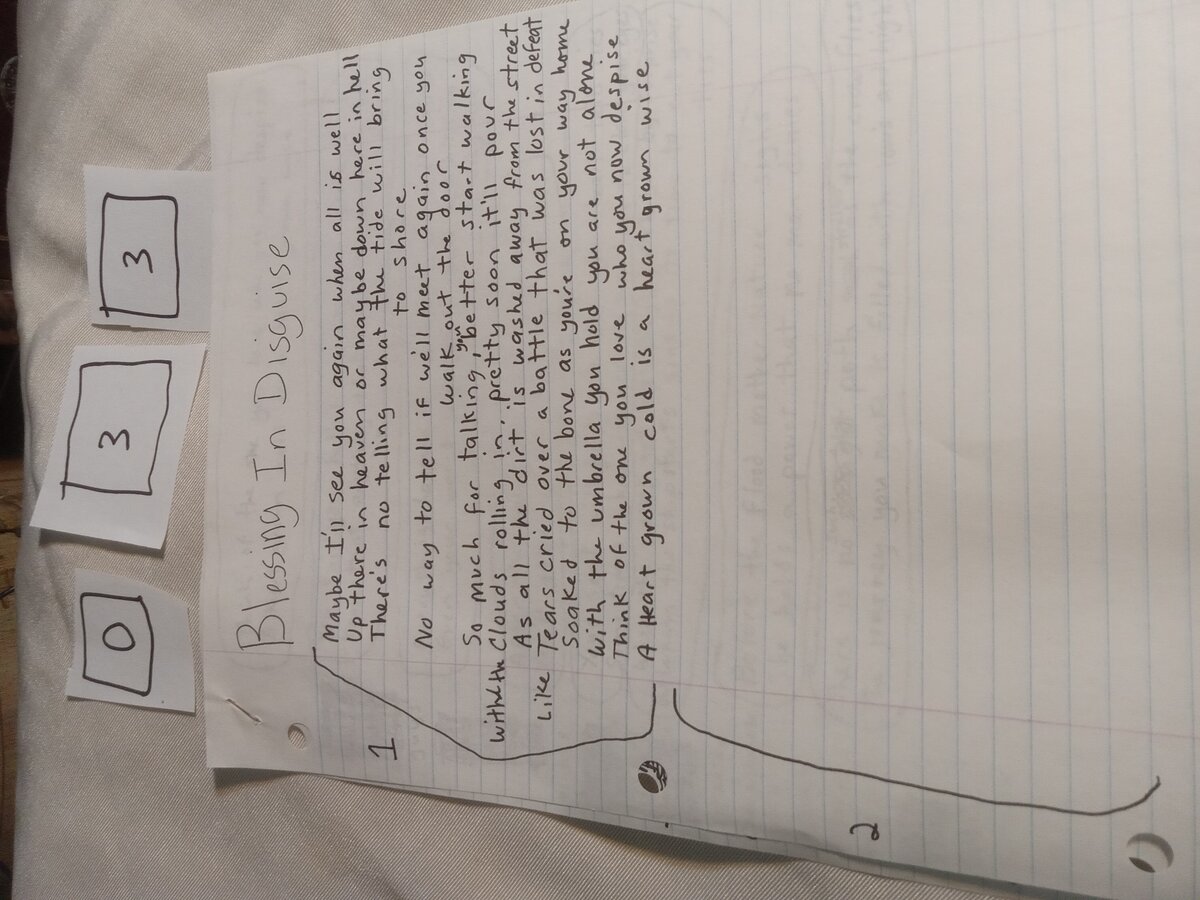 0 3 3
Blessing In Disguise
1
Maybe I'll see you again when all is well
Up there in heaven or maybe down here in hell
There's no telling what the tide will bring
to shore
No way to tell if we'll meet again once you
walk out the door
So much for talking, you better start walking
With the Clouds rolling in, pretty soon it'll pour
As all the dirt is washed away from the street
Like Tears cried over a battle that was lost in defeat
Soaked to the bone as you're on your way home
With the umbrella you hold you are not alone
Think of the one you love who you now despise
A Heart grown cold is a heart grown wise
2